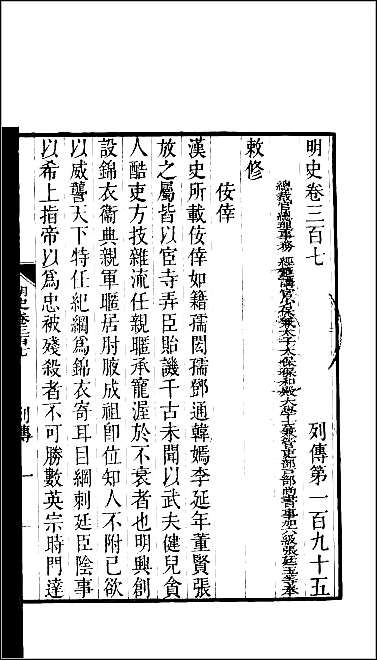 明史卷三百七 列傳第一百九十五
總裁官總理事務 經筵講官少保兼太子太保保和殿大學士兼管吏部戶部尚書事加六級張廷玉等奉
敕修
佞倖
漢史所載佞倖如籍孺閎孺鄧通韓嫣李延年董賢張
放之屬皆以宦寺弄臣貽譏千古未聞以武夫健兒貪
人酷吏方技雜流任親暱承寵渥於不衰者也明興創
設錦衣衞典親軍暱居肘腋成祖卽位知人不附己欲
以威讋天下特任紀綱爲錦衣寄耳目綱刺廷臣陰事
以希上指帝以爲忠被殘殺者不可勝數英宗時門達
明史卷三百七 列傳 一